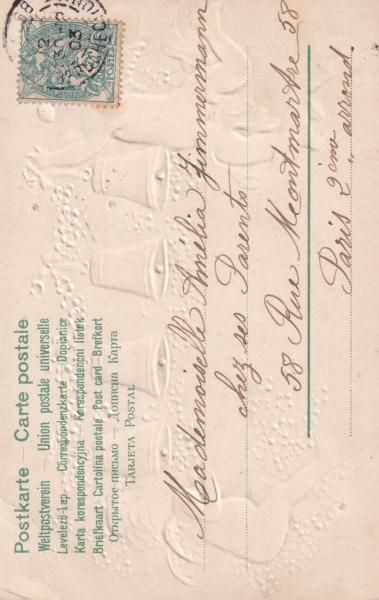 Postkarte — Carte postale
Weltpostverein — Union postale universelle
Levelező-Lap — Correspondenzkarte — Dopisnice
Karta korespondencyjna — Korespondenční lístek
Briefkaart — Cartolina postale — Post card — Brefkort
Открытое-письмо — Дописна Карта
TARJETA POSTAL
12
03
POSTES
Mademoiselle Amélia Zimmermann
chez ses Parents
58 Rue Montmartre 58
Paris 2ème arrond.